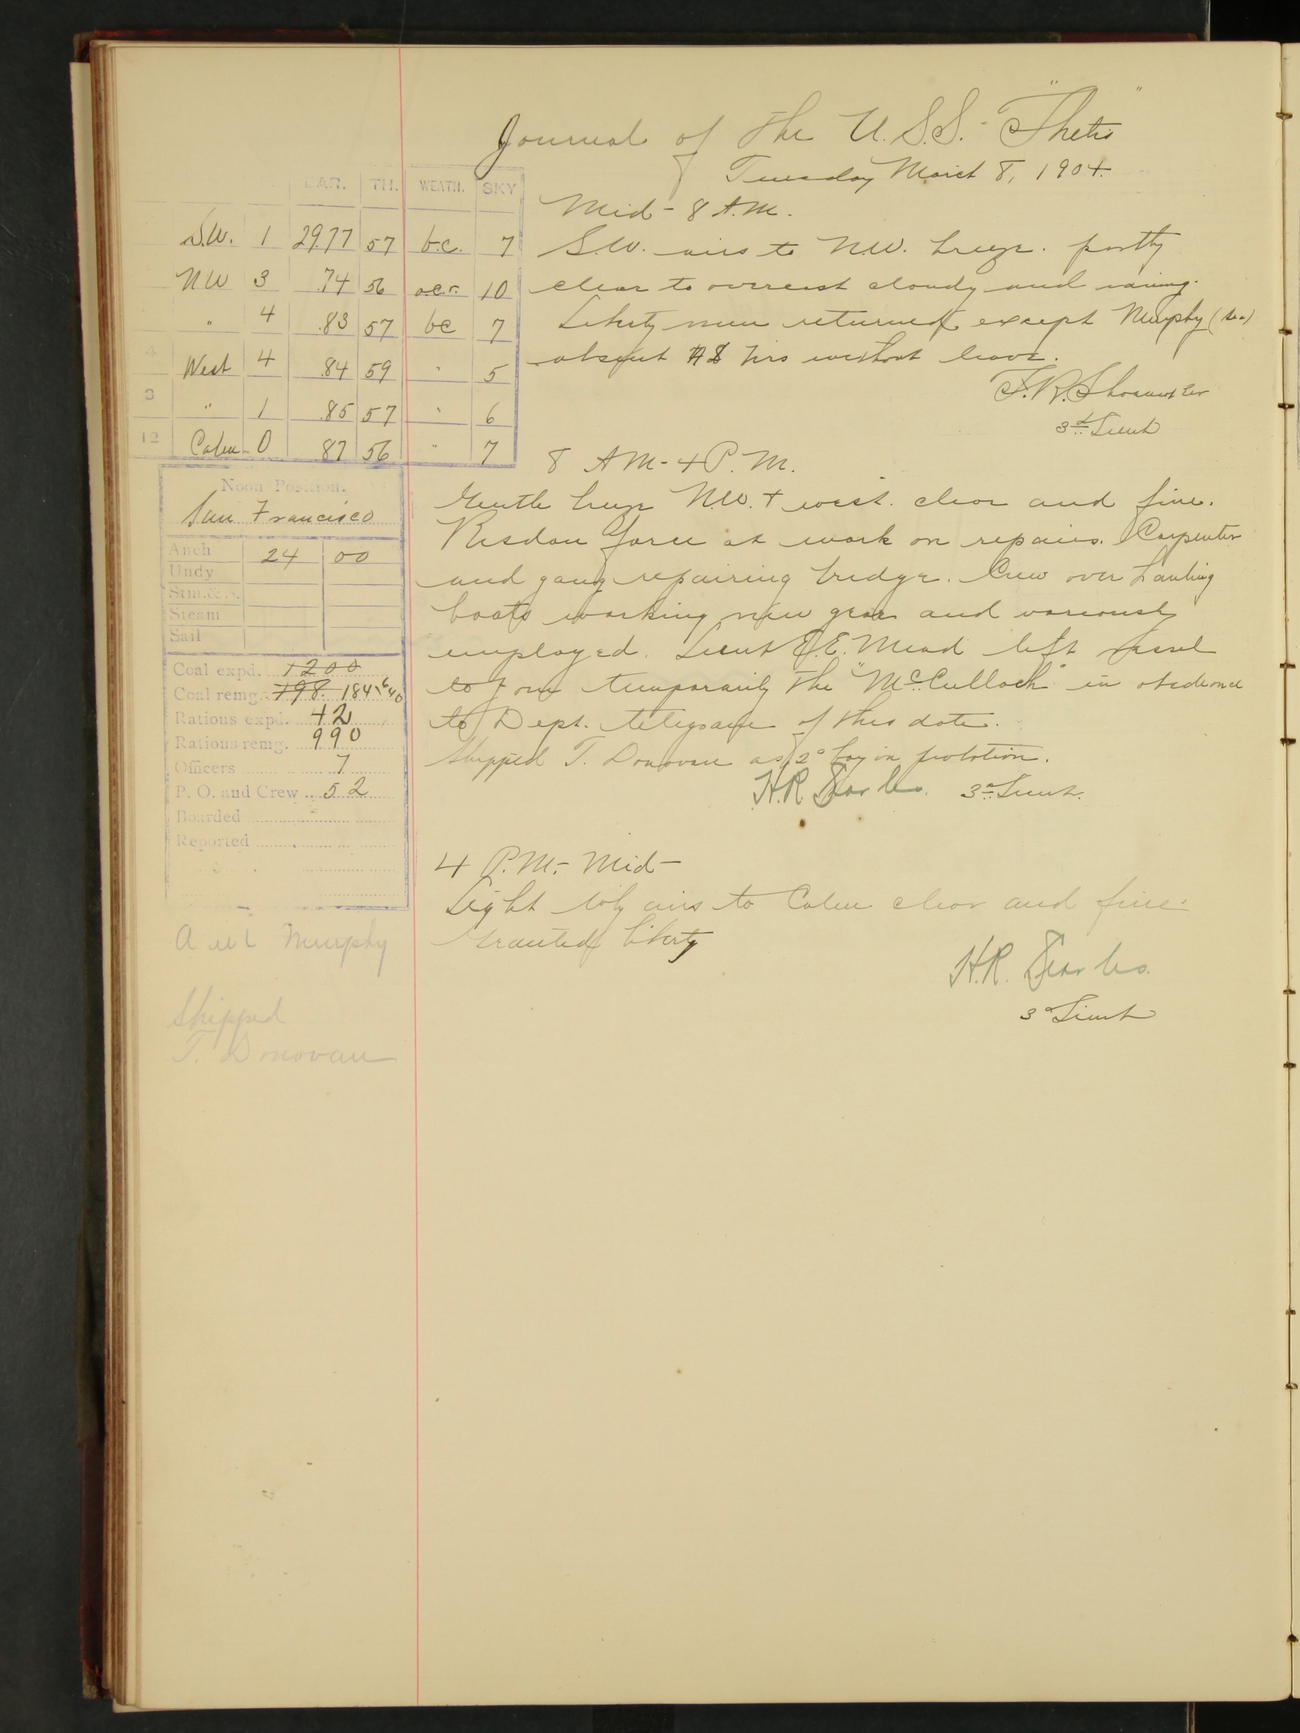 Journal of the U.S.S. "Thetis"
Tuesday March 8, 1904.
BAR. TH. WEATH. SKY
S.W. 1 29.77 57 b.c. 7
NW 3 .74 56 o.c.r. 10
" 4 .83 57 bc 7
4 West 4 .84 59 " 5
8 " 1 .85 57 " 6
12 Calm 0 87 56 " 7
Noon Position.
San Francisco
Anch 24 00
Undy
Stm.& S.
Steam
Sail
Coal expd. 1200
Coal remg. 198. 184
Rations expd. 42
Rations remg. 990
Officers 7
P. O. and Crew 52
Boarded
Reported
A w l Murphy
Shipped
T. Donovan
Mid - 8 A.M.
S.W. airs to N.W. breeze. partly
clear to overcast cloudy and raining.
Liberty men returned except Murphy (sea)
absent hrs without leave.
F.R. Shoemaker
3d Lieut
8 AM - 4 P.M.
Gentle breeze N.W. + west. clear and fine.
Risdon force at work on repairs. Carpenter
and gang repairing bridge. Crew over hauling
boats working new gear and variously
employed. Lieut E.E. Mead left vessel
to join temporarily the "McCulloch" in obedience
to Dept. telegram of this date.
Shipped T. Donovan as 2° boy on probation.
H.R. Searles. 3d Lieut.
4 P.M. - Mid -
Light wly airs to Calm clear and fine.
Granted liberty
H.R. Searles.
3d Lieut